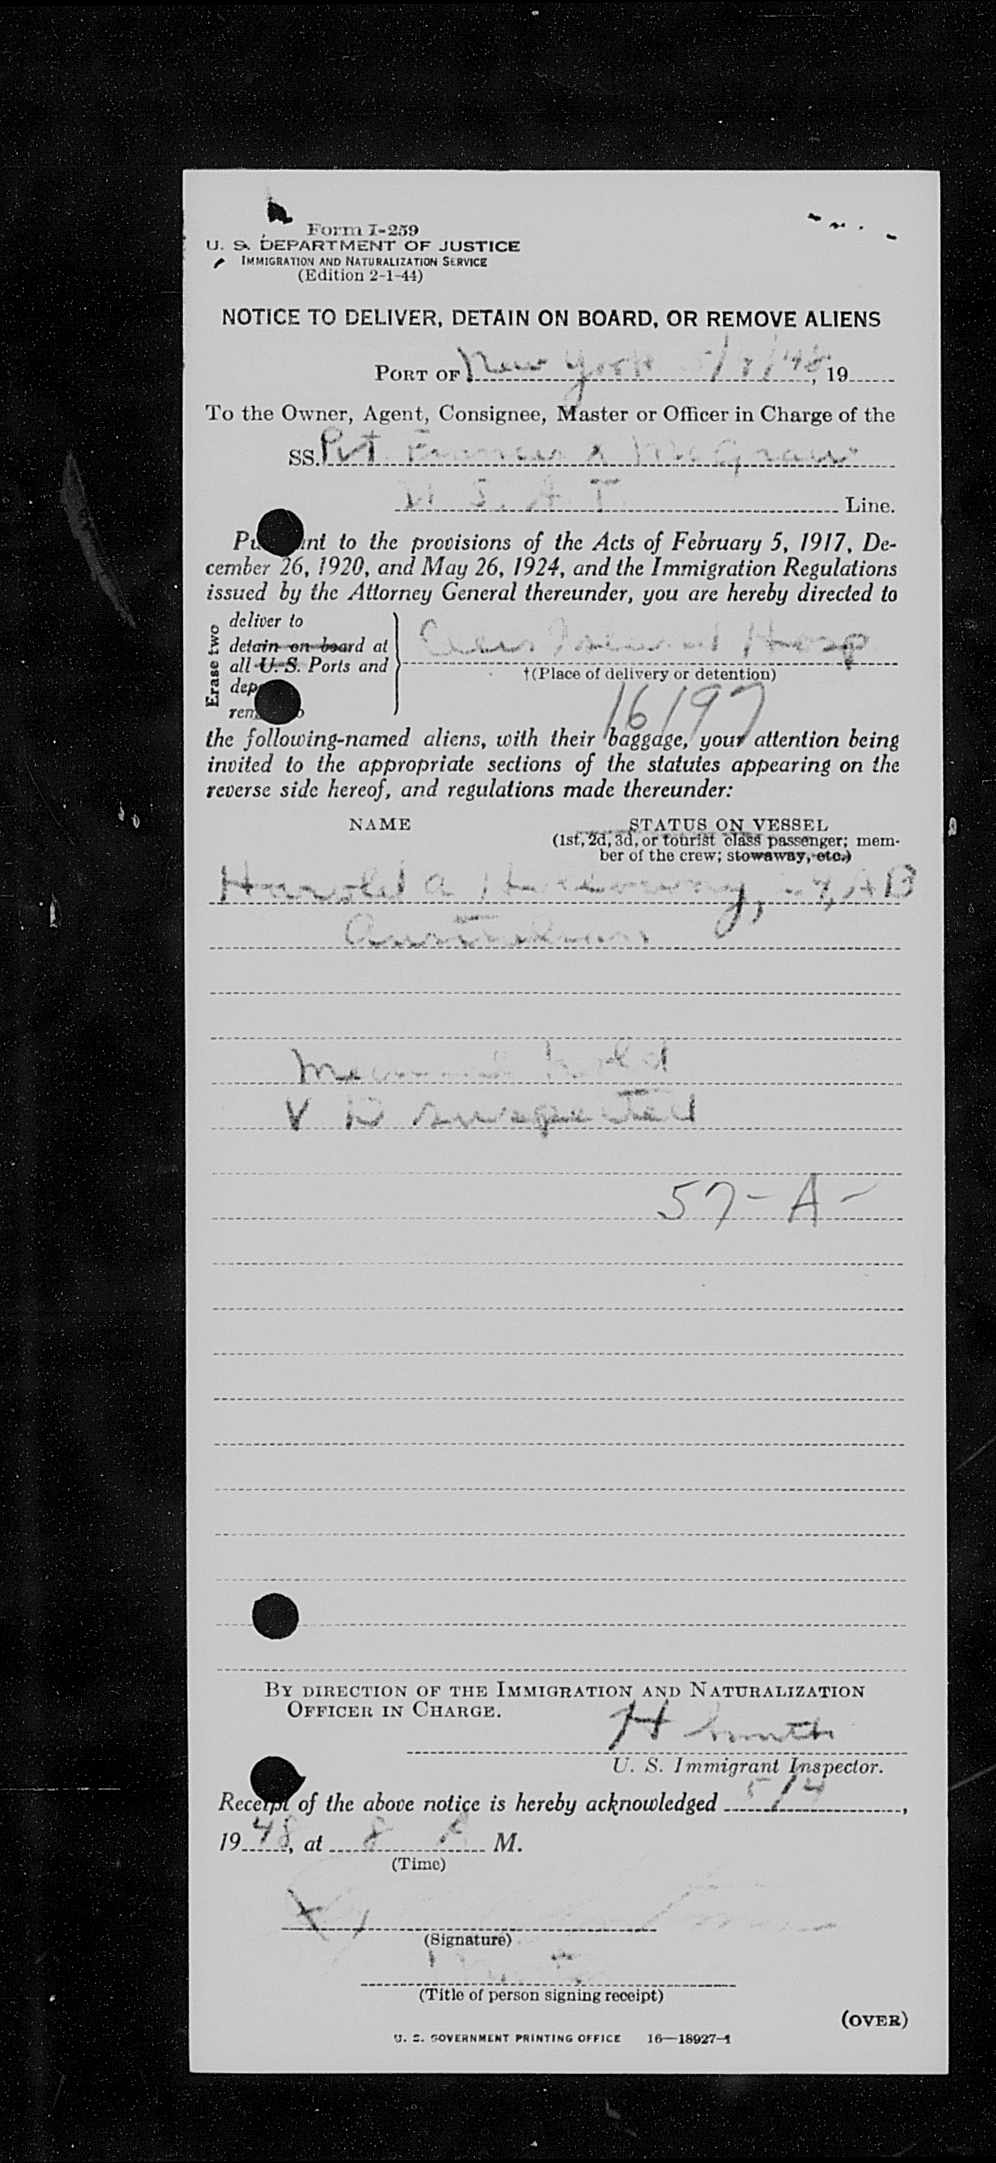 Form I-259
U. S. DEPARTMENT OF JUSTICE
IMMIGRATION AND NATURALIZATION SERVICE
(Edition 2-1-44)
NOTICE TO DELIVER, DETAIN ON BOARD, OR REMOVE ALIENS
PORT OF New York 5/ /48, 19
To the Owner, Agent, Consignee, Master or Officer in Charge of the
SS. Pvt Francis X McGraw
U S A T Line.
Pu ant to the provisions of the Acts of February 5, 1917, De-
cember 26, 1920, and May 26, 1924, and the Immigration Regulations
issued by the Attorney General thereunder, you are hereby directed to
Erase two
deliver to
detain on board at
all U. S. Ports and
dep
rem o
Ellis Island Hosp
†(Place of delivery or detention)
16197
the following-named aliens, with their baggage, your attention being
invited to the appropriate sections of the statutes appearing on the
reverse side hereof, and regulations made thereunder:
NAME
STATUS ON VESSEL
(1st, 2d, 3d, or tourist class passenger; mem-
ber of the crew; stowaway, etc.)
Harold A , AB
Australian
hold
V D suspected
57-A-
BY DIRECTION OF THE IMMIGRATION AND NATURALIZATION
OFFICER IN CHARGE.
H Smith
U. S. Immigrant Inspector.
Receipt of the above notice is hereby acknowledged 5/4,
1948, at 8 A M.
(Time)
(Signature)
(Title of person signing receipt)
(OVER)
U. S. GOVERNMENT PRINTING OFFICE 16—18927-1